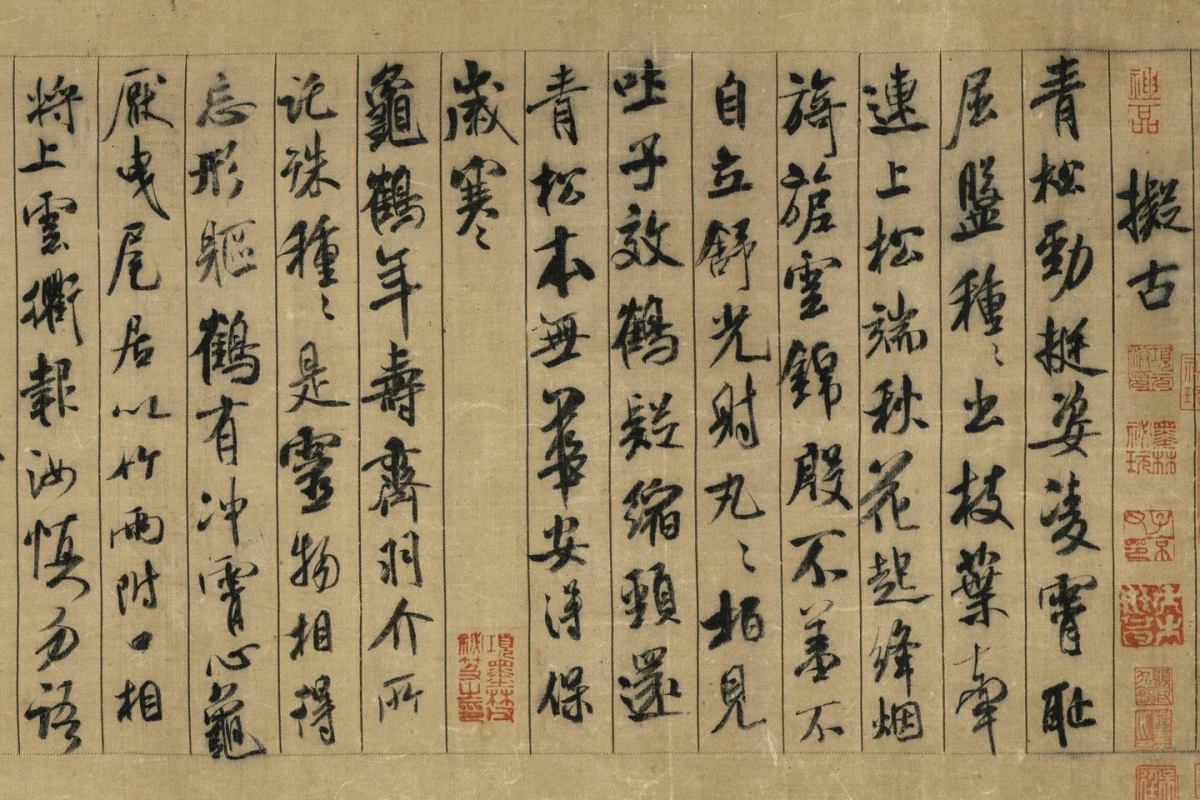 神品
擬古
青松勁挺姿凌霄耻
屈盤種〻出枝葉牽
連上松端秋花起絳烟
旖旎雲錦殷不羞不
自立舒光射丸〻柏見
吐子效鶴疑縮頸還
青松本無華安得保
歲寒
龜鶴年壽齊羽介所
託殊種〻是靈物相得
忘形軀鶴有冲霄心龜
厭曳尾居以竹兩附口相
將上雲衢報汝慎勿語
墨林祕玩
子京父印
項墨林父祕笈之印